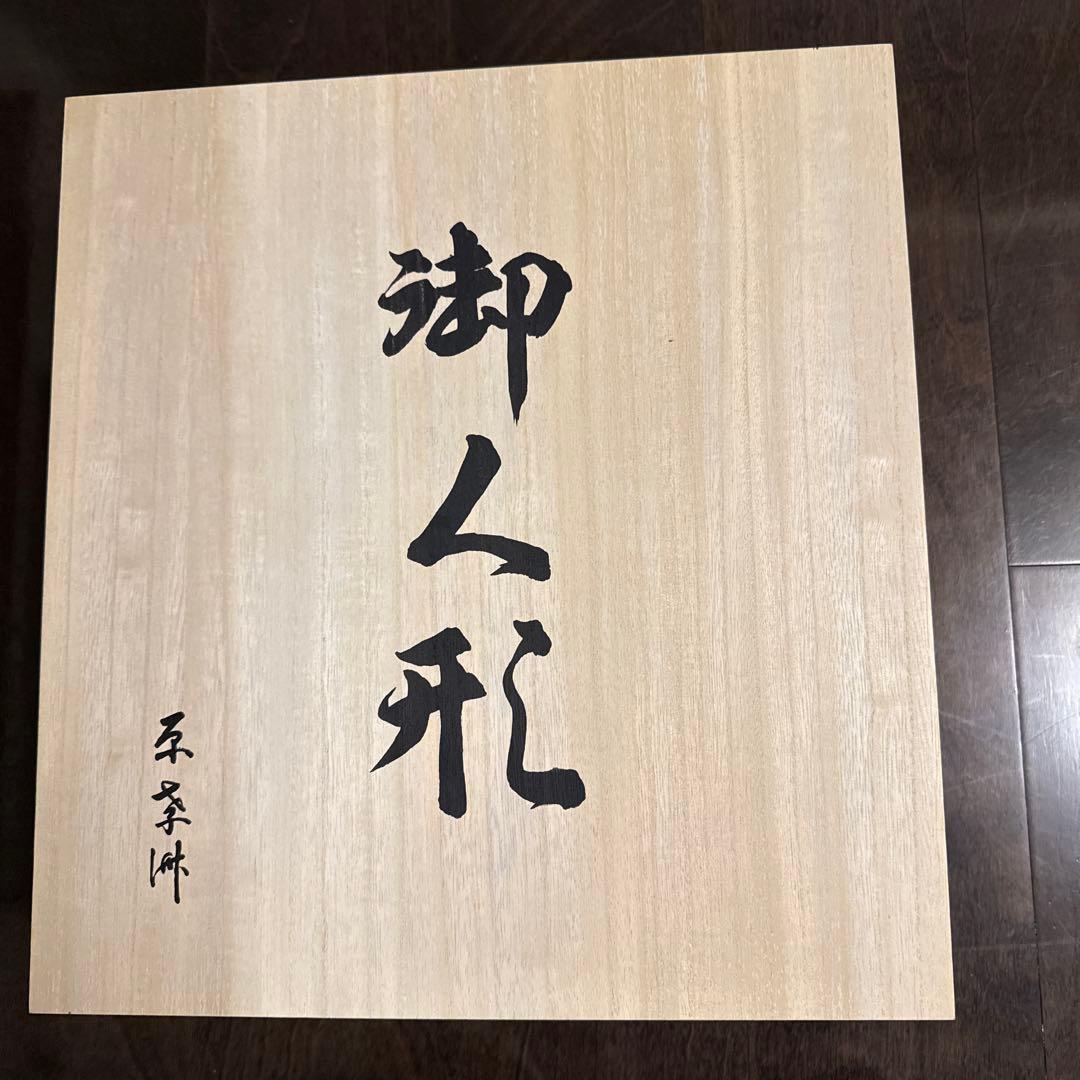 御人形
原孝洲